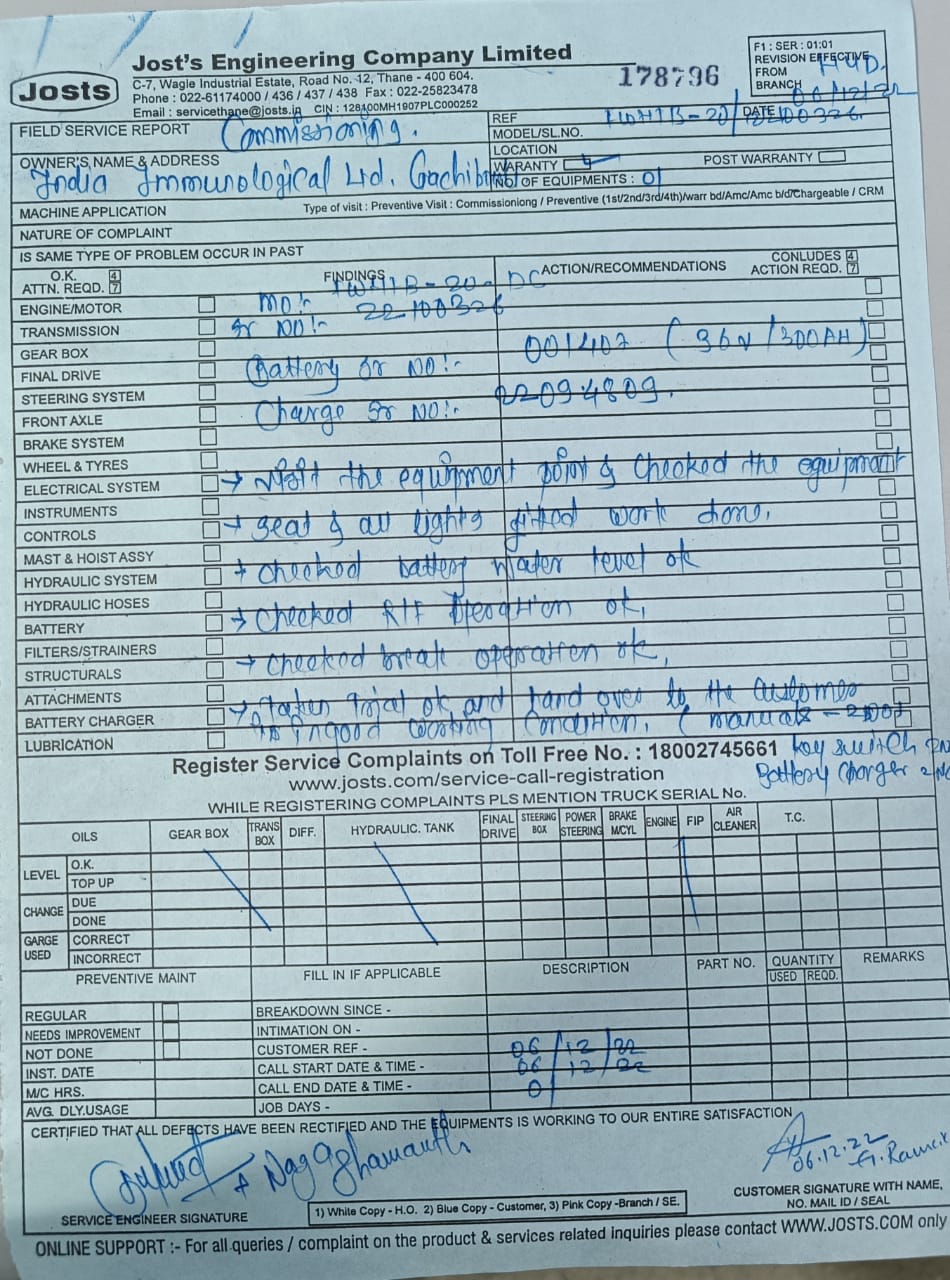 Jost's Engineering Company Limited
Josts
C-7, Wagle Industrial Estate, Road No. 12, Thane - 400 604.
Phone : 022-61174000 / 436 / 437 / 438 Fax : 022-25823478
Email : servicethane@josts.in CIN : 128100MH1907PLC000252
178796
F1 : SER : 01:01
REVISION EFFECTIVE
FROM HCYD.
BRANCH
FIELD SERVICE REPORT Commissioning.
REF DATE 06/12/22
MODEL/SL.NO.
LOCATION
OWNER'S NAME & ADDRESS
WARANTY POST WARRANTY
India Immunological Ltd. Gachib
NO OF EQUIPMENTS : 01
MACHINE APPLICATION Type of visit : Preventive Visit : Commissioniong / Preventive (1st/2nd/3rd/4th)/warr bd/Amc/Amc b/d/Chargeable / CRM
NATURE OF COMPLAINT
IS SAME TYPE OF PROBLEM OCCUR IN PAST
O.K. 4 FINDINGS ACTION/RECOMMENDATIONS CONLUDES 4
ATTN. REQD. 7 ACTION REQD. 7
ENGINE/MOTOR MO:- 20-DC
TRANSMISSION Sr NO:- 22100326
GEAR BOX
FINAL DRIVE Battery Sr NO:- 001407 (36V/300AH)
STEERING SYSTEM
FRONT AXLE Charge Sr NO:- 22094809.
BRAKE SYSTEM
WHEEL & TYRES
ELECTRICAL SYSTEM → Visit the equipment point & Checked the equipment
INSTRUMENTS
CONTROLS → Seat & all lights fitted work done.
MAST & HOIST ASSY
HYDRAULIC SYSTEM → Checked battery water level ok
HYDRAULIC HOSES
BATTERY → Checked R/F operation ok,
FILTERS/STRAINERS
STRUCTURALS → Checked break operation ok,
ATTACHMENTS
BATTERY CHARGER → Taken trial ok and hand over to the customer
LUBRICATION in good working condition. (manuals -
Register Service Complaints on Toll Free No. : 18002745661 key switch
www.josts.com/service-call-registration Battery charger
WHILE REGISTERING COMPLAINTS PLS MENTION TRUCK SERIAL No.
OILS GEAR BOX TRANS BOX DIFF. HYDRAULIC. TANK FINAL DRIVE STEERING BOX POWER STEERING BRAKE M/CYL ENGINE FIP AIR CLEANER T.C.
LEVEL O.K.
TOP UP
CHANGE DUE
DONE
GARGE USED CORRECT
INCORRECT
PREVENTIVE MAINT FILL IN IF APPLICABLE DESCRIPTION PART NO. QUANTITY REMARKS
USED REQD.
REGULAR BREAKDOWN SINCE -
NEEDS IMPROVEMENT INTIMATION ON -
NOT DONE CUSTOMER REF -
INST. DATE CALL START DATE & TIME - 06/12/22
M/C HRS. CALL END DATE & TIME - 06/12/22
AVG. DLY.USAGE JOB DAYS - 01
CERTIFIED THAT ALL DEFECTS HAVE BEEN RECTIFIED AND THE EQUIPMENTS IS WORKING TO OUR ENTIRE SATISFACTION
06.12.22
SERVICE ENGINEER SIGNATURE
1) White Copy - H.O. 2) Blue Copy - Customer, 3) Pink Copy -Branch / SE.
CUSTOMER SIGNATURE WITH NAME,
NO. MAIL ID / SEAL
ONLINE SUPPORT :- For all queries / complaint on the product & services related inquiries please contact WWW.JOSTS.COM only